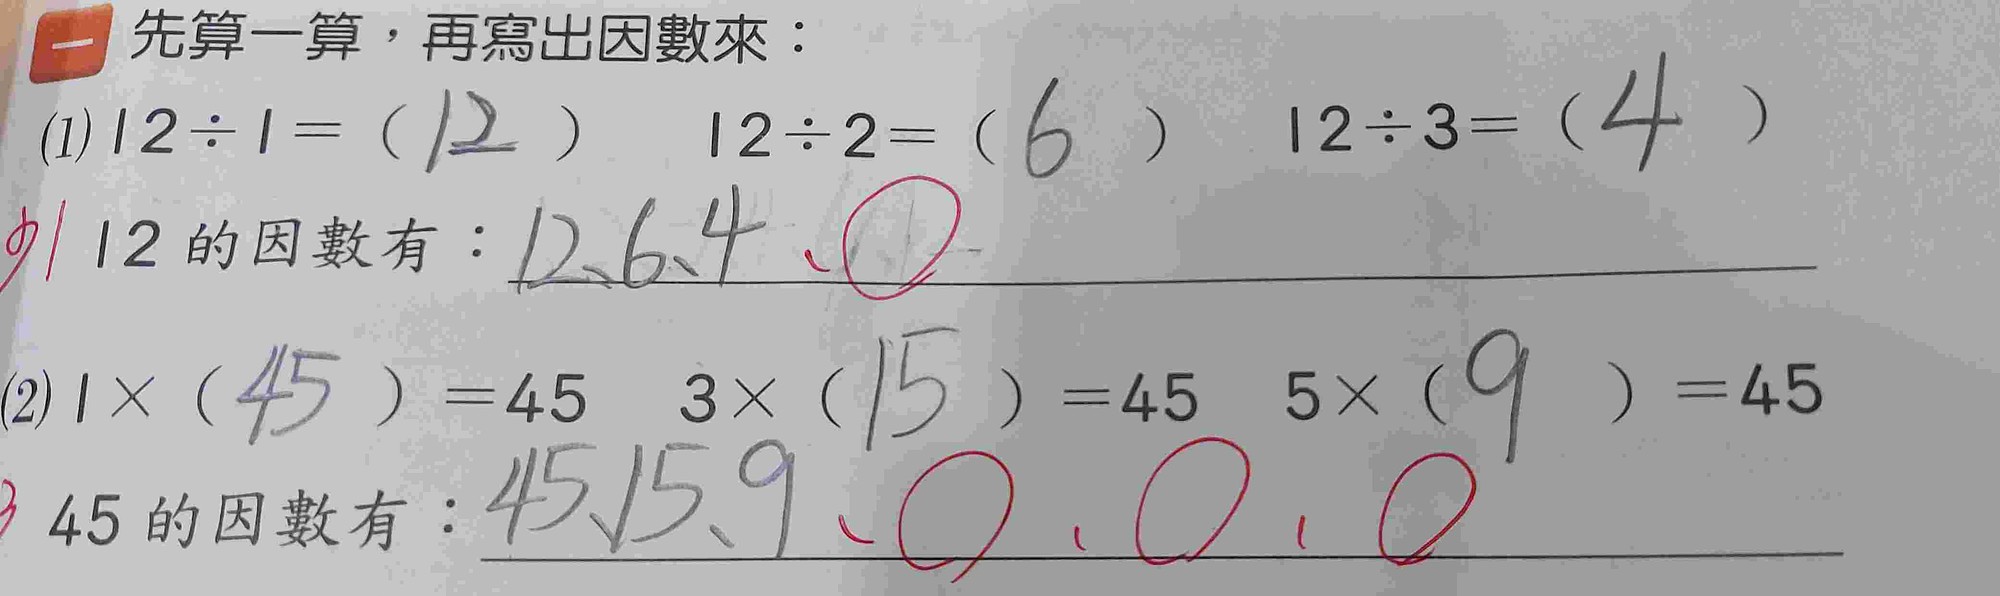 一 先算一算，再寫出因數來：
(1) 12÷1=（12） 12÷2=（6） 12÷3=（4）
12 的因數有：12、6、4、
(2) 1×（45）=45 3×（15）=45 5×（9）=45
45 的因數有：45、15、9、